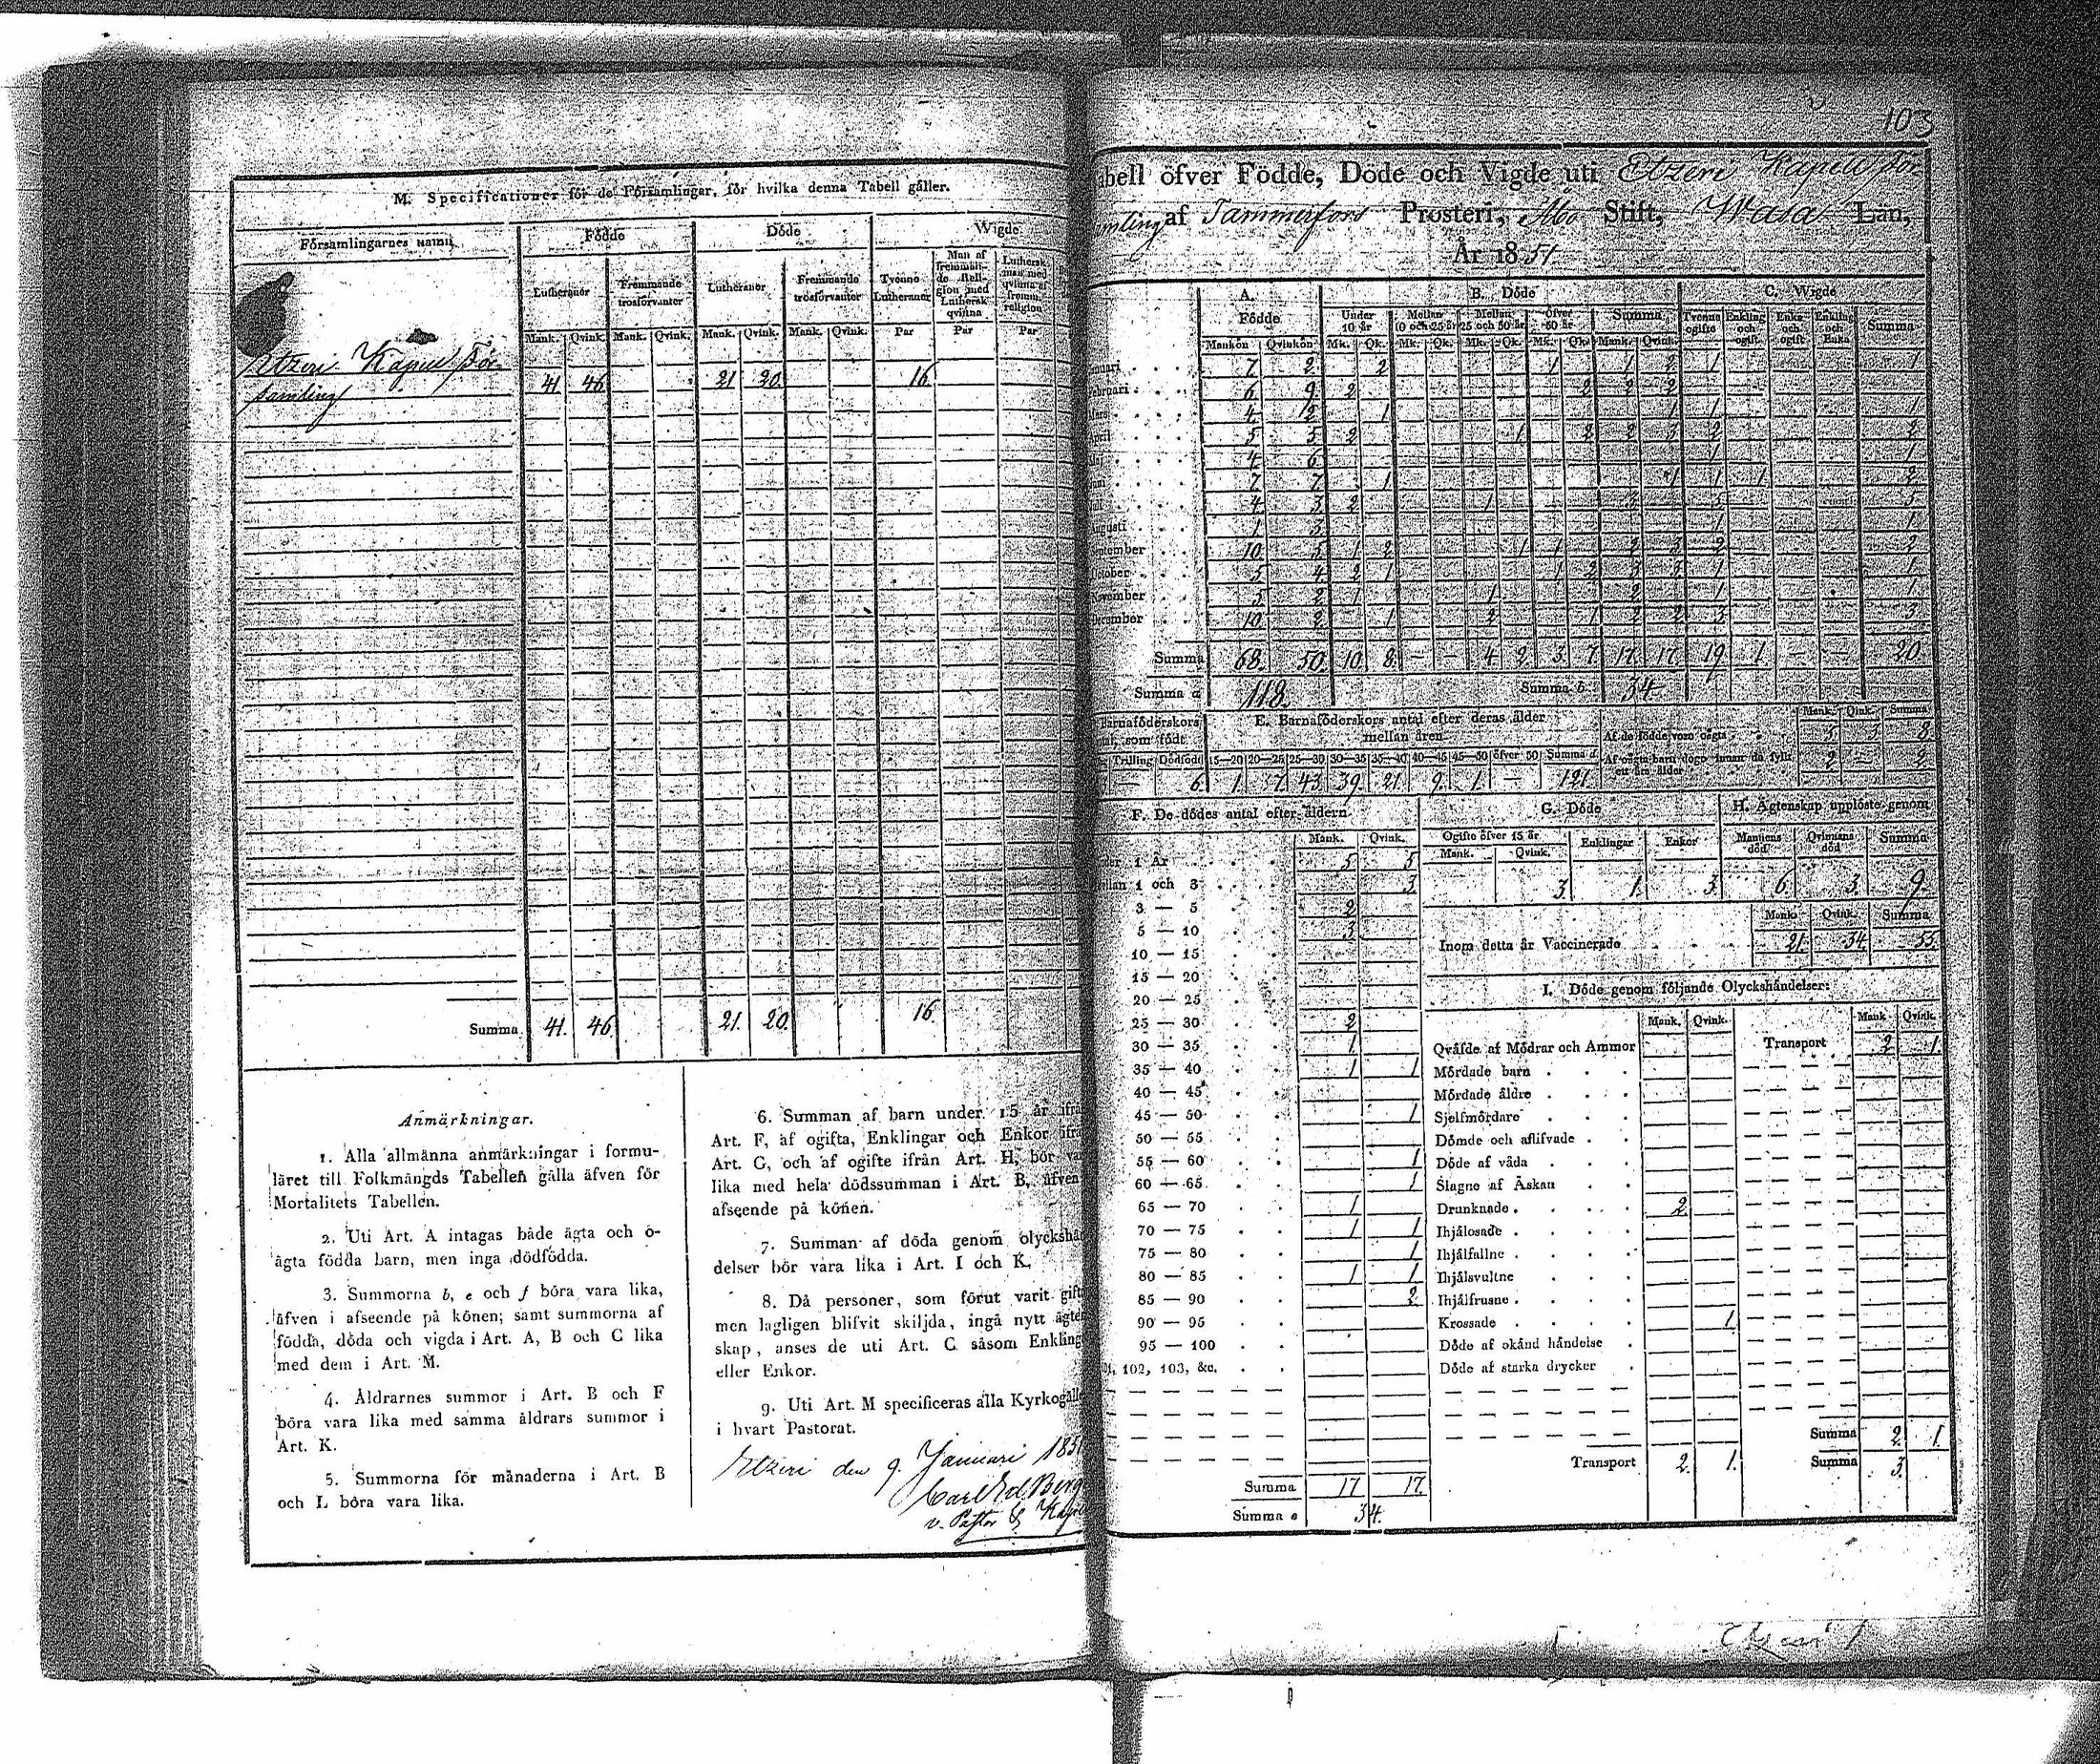 M. Specificationer för de Församlingar, för hvilka denna Tabell gäller.
Församlingarnes namn. Födde Döde Wigde
Lutheraner Fremmande trosförvanter Lutheraner Fremmande trosförvanter Tvenne Lutheraner Man af fremmande Religion med Luthersk qvinna Luthersk man med qvinna af fremm. religion
Mank. Qvink. Mank. Qvink. Mank. Qvink. Mank. Qvink. Par Par Par
Etzeri Kapell För-
samling 41 46 21 20 16
Summa 41. 46 21. 20. 16.
Anmärkningar.
1. Alla allmänna anmärkningar i formu-
läret till Folkmängds Tabellen gälla äfven för
Mortalitets Tabellen.
2. Uti Art. A intagas både ägta och o-
ägta födda barn, men inga dödfödda.
3. Summorna b, e och f böra vara lika,
äfven i afseende på könen; samt summorna af
födda, döda och vigda i Art. A, B och C lika
med dem i Art. M.
4. Åldrarnes summor i Art. B och F
böra vara lika med samma åldrars summor i
Art. K.
5. Summorna för månaderna i Art. B
och L böra vara lika.
6. Summan af barn under 15 år ifrå
Art. F, af ogifta, Enklingar och Enkor ifrå
Art. G, och af ogifte ifrån Art. H, bör va
lika med hela dödssumman i Art. B, äfven
afseende på könen.
7. Summan af döda genom olyckshän
delser bör vara lika i Art. I och K.
8. Då personer, som förut varit gift
men lagligen blifvit skiljda, ingå nytt ägten
skap, anses de uti Art. C såsom Enkling
eller Enkor.
9. Uti Art. M specificeras alla Kyrkogälle
i hvart Pastorat.
Etzeri den 9. Januari 185
Carl Ed. Berg
v. Pastor & Kap
103
abell öfver Födde, Döde och Vigde uti Etzeri Kapell för
mling af Tammerfors Prosteri, Åbo Stift, Wasa Län,
År 1851.
A. Födde B. Döde C. Wigde
Under 10 år Mellan 10 och 25 år Mellan 25 och 50 år Öfver 50 år Summa Tvenne ogifte Enkling och ogift Enka och ogift Enkling och Enka Summa
Mankön Qvinkön Mk. Qk. Mk. Qk. Mk. Qk. Mk. Qk. Mank. Qvink.
nuari 7 2 2 1 1 2 1 1
ebruari 6 9 2 2 2 2
Mars 4 2 1 1 1 1
April 5 5 2 1 2 2 3 2 2
Maj 4 6 1 1
Juni 7 7 1 1 1 1 2
Juli 4 3 2 1 3 5 5
Augusti 1 3 1 1
September 10 5 1 2 1 1 2 3 2 2
October 5 4 2 1 1 2 3 3 1 1
November 5 2 1 1 2 1 1
December 10 2 1 2 1 2 2 3 3
Summa 68. 50. 10. 8. — — 4. 2. 3. 7. 17. 17. 19. 1. — — 20
Summa a 118. Summa b. 34
Barnaföderskors
tal, som födt
Trilling Dödfödt
— 6.
E. Barnaföderskors antal efter deras ålder
mellan åren
15—20 20—25 25—30 30—35 35—40 40—45 45—50 öfver 50 Summa d
1. 7. 43. 39. 21. 9. 1. — 121.
Mank. Qink. Summa
Af de födde voro oägta 5 3 8.
Af oägta barn dogo innan de fyllt
ett års ålder 2 — 2
F. De dödes antal efter åldern.
Mank. Qvink.
der 1 År 5 5
ellan 1 och 3 3.
3 — 5 2
5 — 10 3
10 — 15
15 — 20
20 — 25
25 — 30 2
30 — 35 1
35 — 40 1 1
40 — 45
45 — 50 1
50 — 55
55 — 60 1
60 — 65 1
65 — 70 1
70 — 75 1 1
75 — 80 1
80 — 85 1 1
85 — 90 2
90 — 95
95 — 100
101, 102, 103, &c.
Summa 17 17.
Summa e 34.
G. Döde
Ogifte öfver 15 år Enklingar Enkor
Mank. Qvink.
3. 1. 3.
H. Ägtenskap upplöste genom
Mannens död Qvinnans död Summa
6 3. 9.
Mank. Qvink. Summa
Inom detta år Vaccinerade 21. 34 55.
I. Döde genom följande Olyckshändelser:
Mank. Qvink. Mank. Qvink.
Qväfde af Mödrar och Ammor Transport 2 1.
Mördade barn
Mördade äldre
Sjelfmördare
Dömde och aflifvade
Döde af våda
Slagne af Åskan
Drunknade 2
Ihjälosade
Ihjälfallne
Ihjälsvultne
Ihjälfrusne
Krossade 1
Döde af okänd händelse
Döde af starka drycker
Summa 2. 1.
Transport 2. 1. Summa 3.